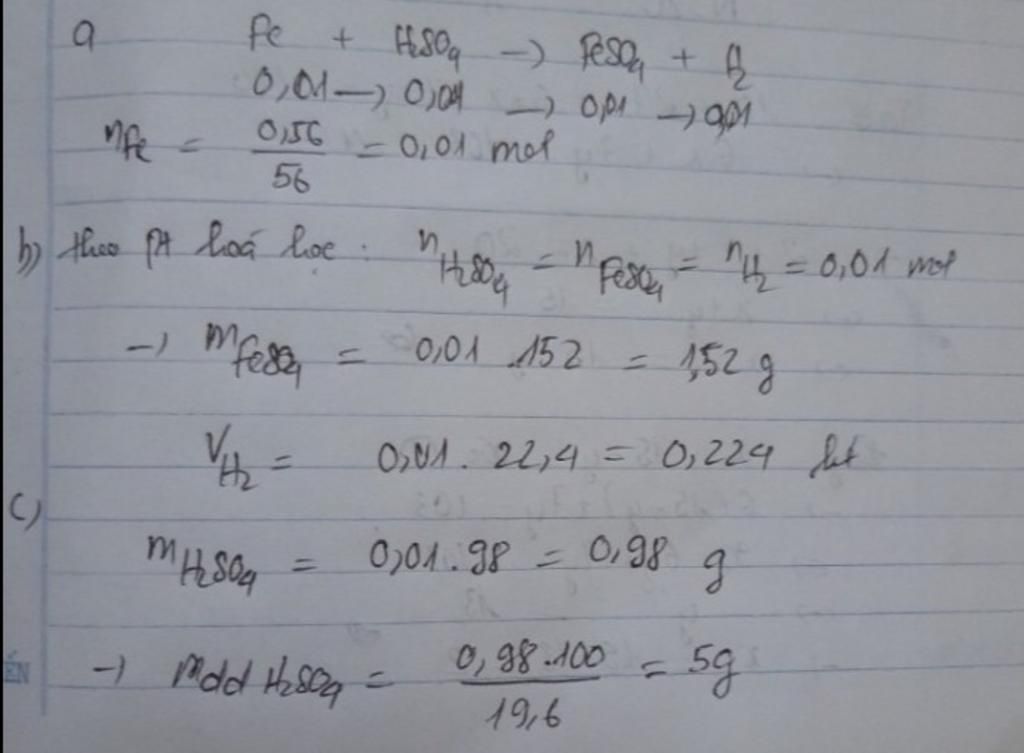 a Fe + H₂SO₄ → FeSO₄ + H₂
0,01 → 0,01 → 0,01 → 0,01
nFe = 0,56/56 = 0,01 mol
b) theo pt hoá học : nH₂SO₄ = nFeSO₄ = nH₂ = 0,01 mol
→ mFeSO₄ = 0,01 . 152 = 1,52 g
VH₂ = 0,01 . 22,4 = 0,224 lít
c)
mH₂SO₄ = 0,01 . 98 = 0,98 g
→ mdd H₂SO₄ = 0,98 . 100/19,6 = 5g
ÉN